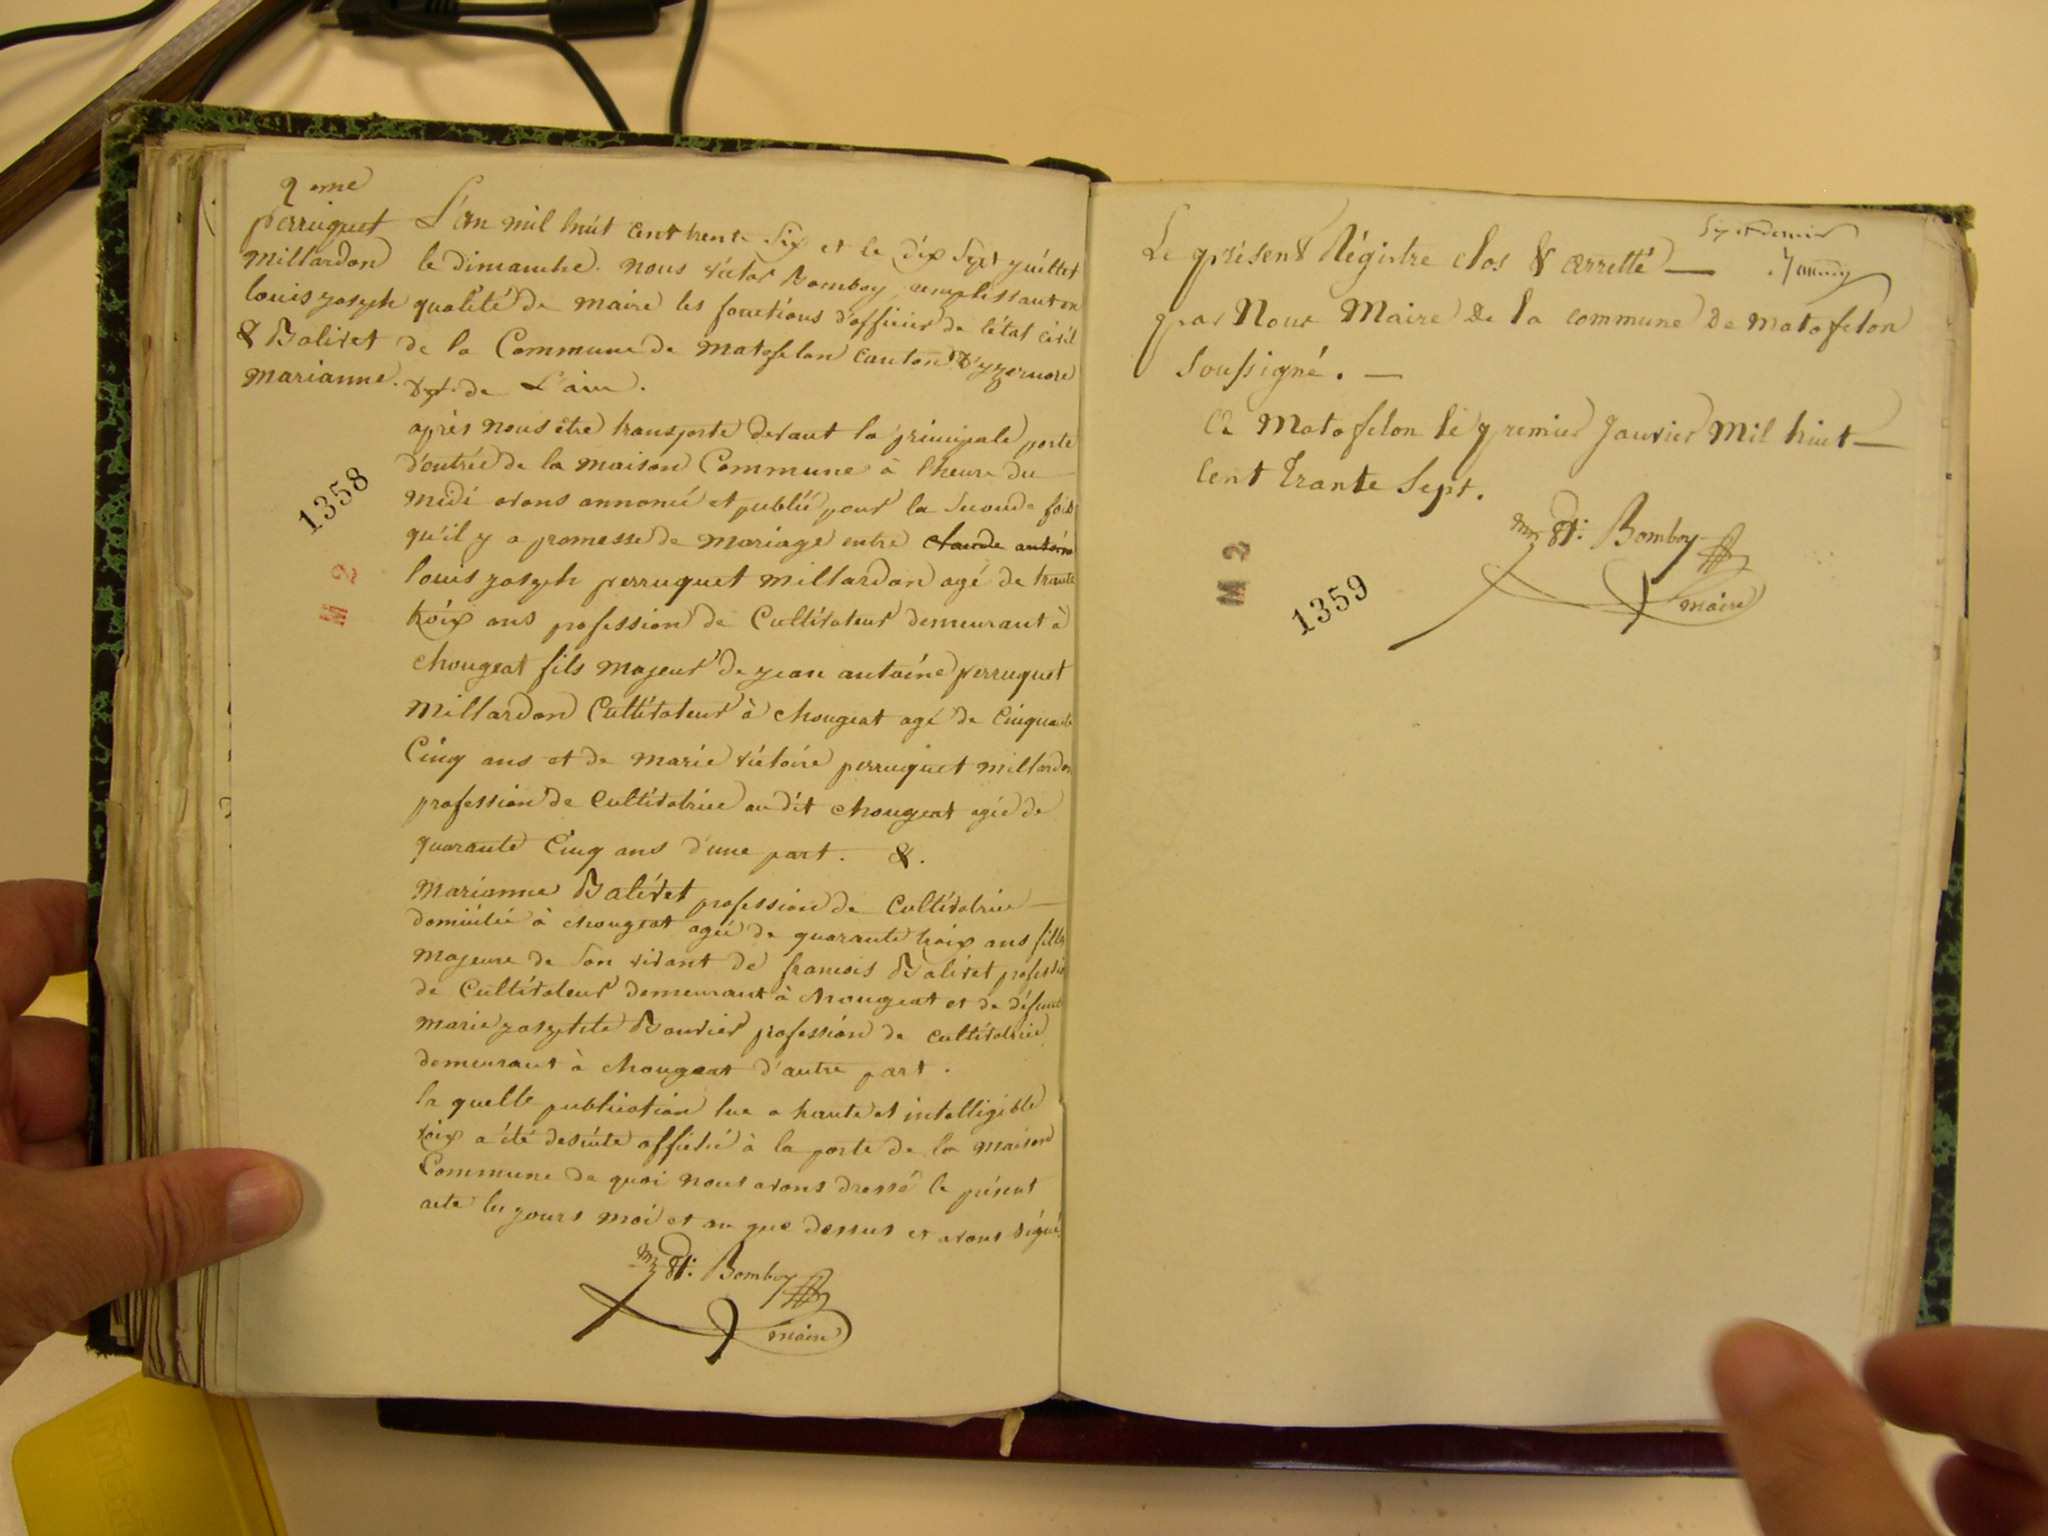 2eme
perruquet
millardon
louis joseph
& Balivet
marianne.
L'an mil huit cent trente six et le dix sept juillet
le dimanche. nous victor Bomboy remplissant en
qualité de maire les fonctions d'officier de l'état civil
de la Commune de matafelon canton d'yzernore
dpt. de L'ain.
après nous être transporté devant la principale porte
d'entrée de la maison Commune à l'heure du
midi avons annoncé et publié pour la seconde fois
qu'il y a promesse de mariage entre claude antoine
louis joseph perruquet millardon agé de trente
troix ans profession de Cultivateur demeurant à
chougeat fils majeur de jean antoine perruquet
millardon Cultivateur à chougeat agé de Cinquante
Cinq ans et de marie victoire perruquet millardon
profession de cultivatrice au dit chougeat agée de
quarante Cinq ans d'une part. &.
marianne Balivet profession de Cultivatrice
domiciliée à chougeat agée de quarante troix ans fille
majeure de son vivant de francois Balivet profession
de Cultivateur demeurant à chougeat et de défunte
marie josephte Bouvier profession de cultivatrice
demeurant à chougeat d'autre part.
la quelle publication lue a haute et intelligible
voix a été desuite affiché à la porte de la maison
Commune de quoi nous avons dressé le présent
acte les jours moi et an que dessus et avons signé.
Bomboy
maire
1358
M 2
Le présent Régistre clos & arretté
par Nous Maire De la commune De matafelon
soussigné.
A Matafelon le premier janvier Mil huit
cent trante sept.
Bomboy
maire
M 2
1359